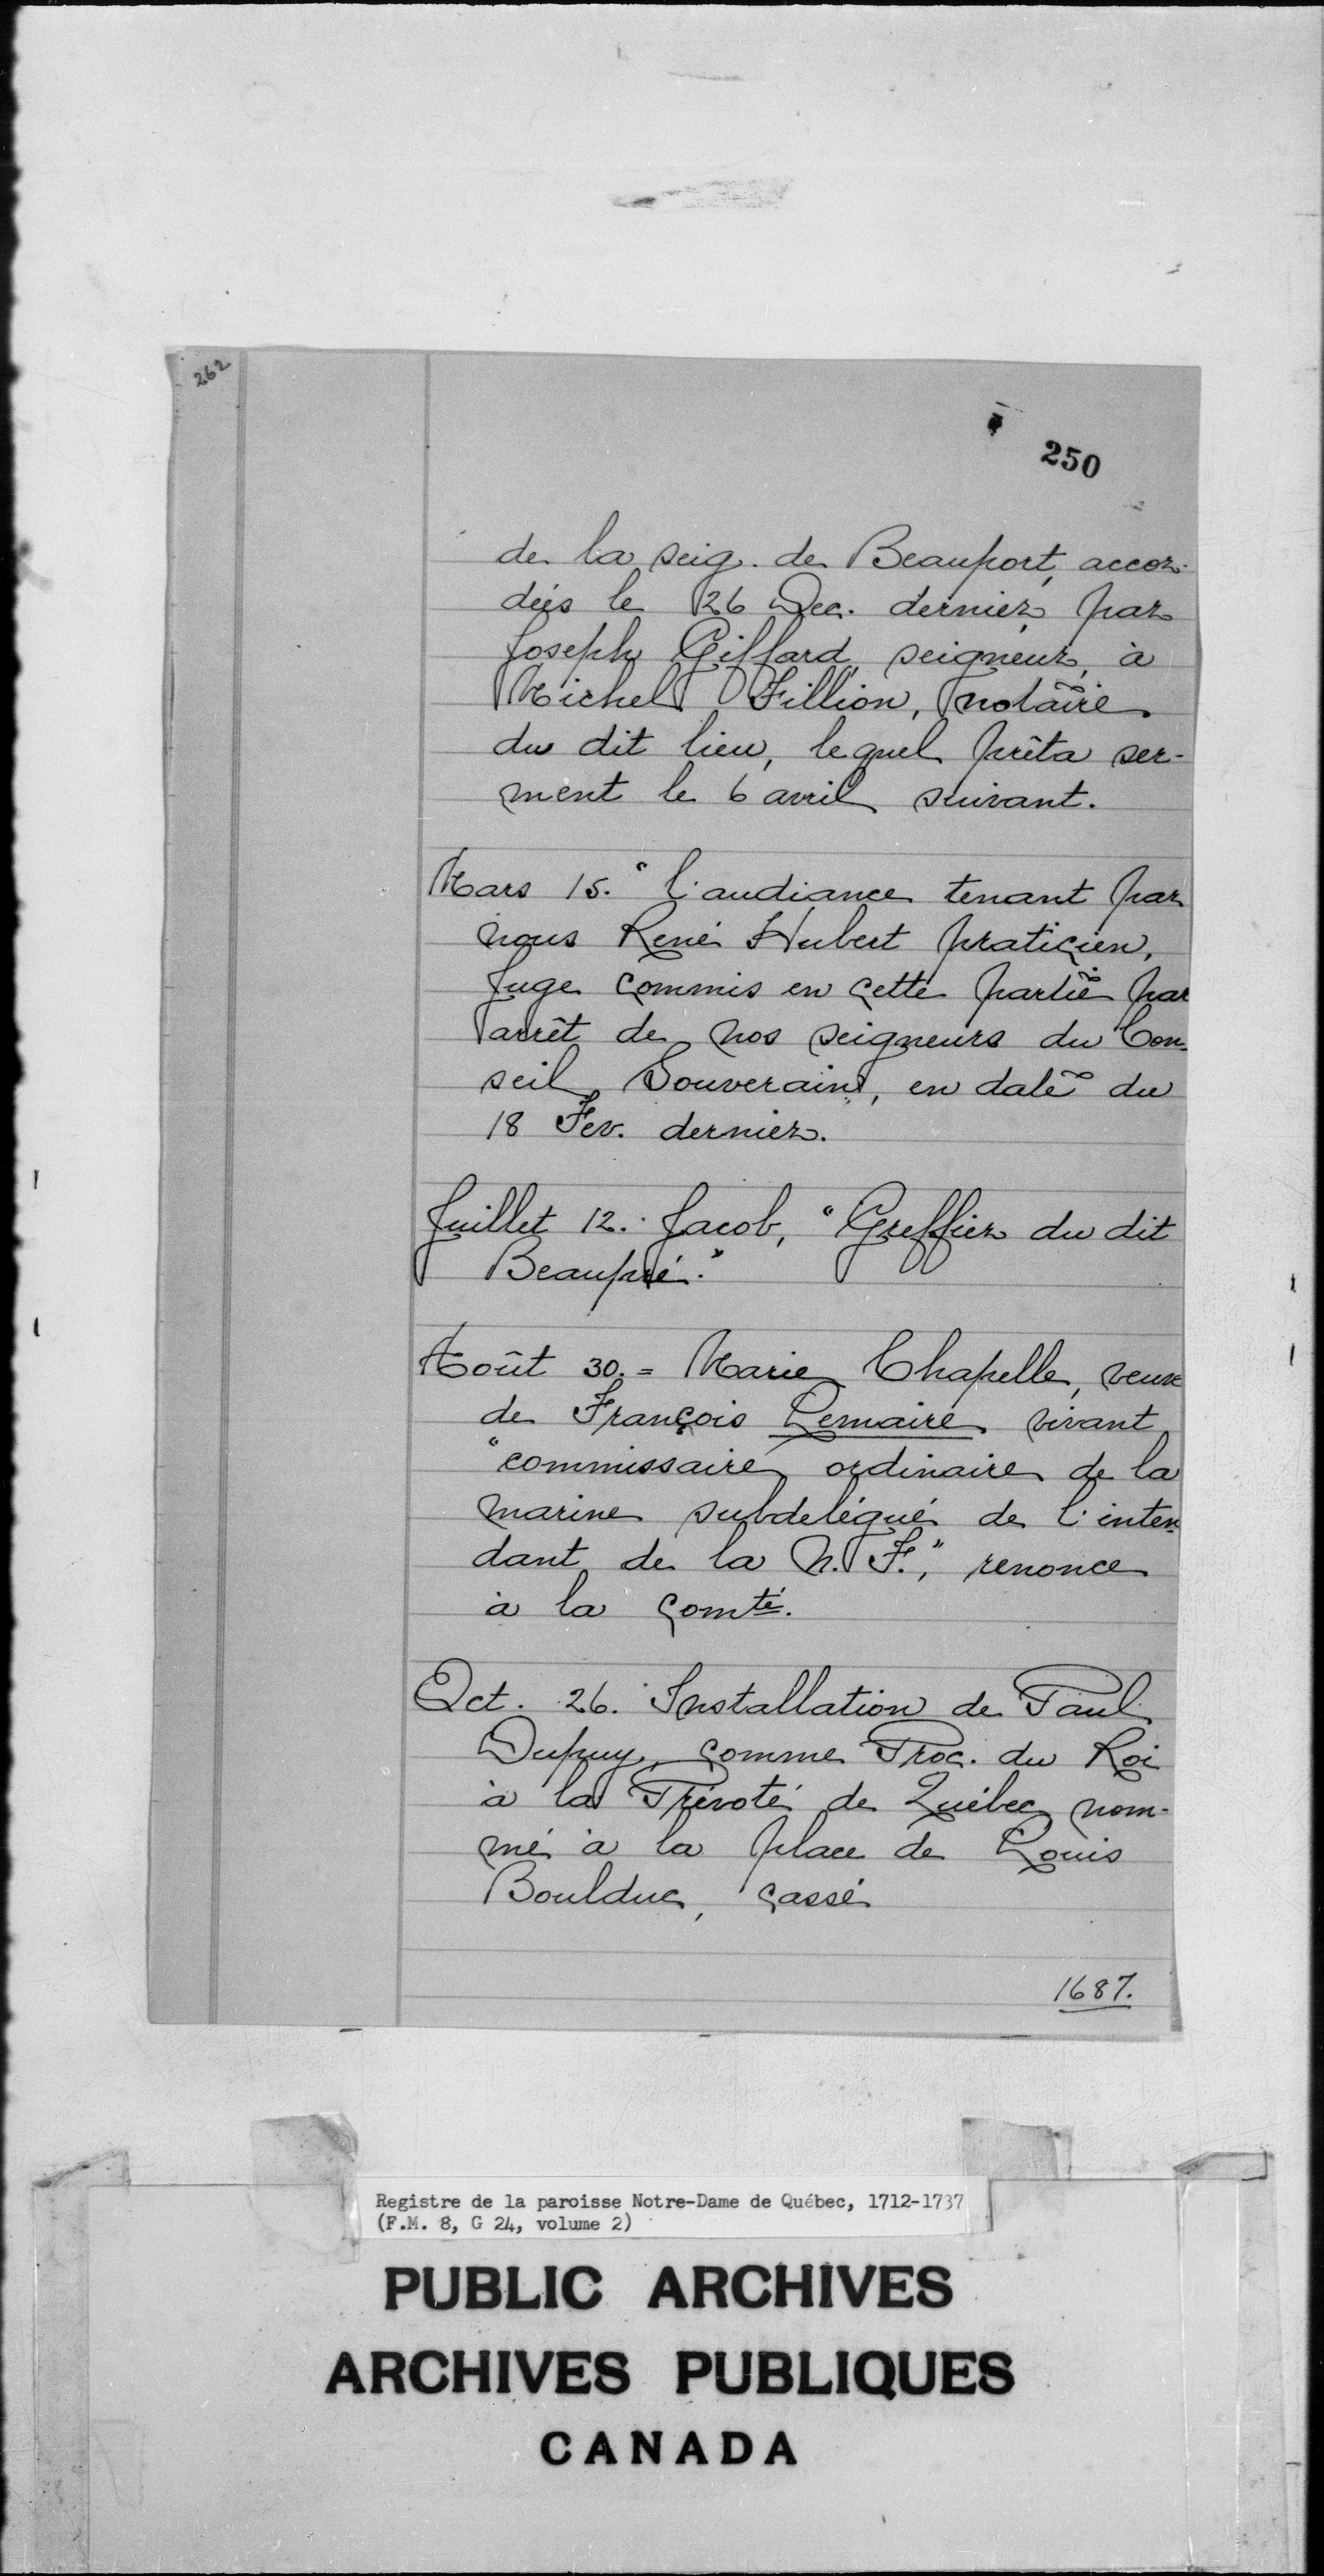 262
250
de la seig. de Beauport, accor-
dées le 26 Dec. dernier, par
Joseph Giffard, seigneur, à
Michel Fillion, notaire
du dit lieu, lequel prêta ser-
ment le 6 avril suivant.
Mars 15. "l'audiance tenant par
nous René Hubert praticien,
Juge commis en cette partie par
arrêt de nos seigneurs du Con-
seil Souverain, en date du
18 Fev. dernier.
Juillet 12. Jacob, "Greffier du dit
Beaupré."
Août 30. = Marie Chapelle, veuve
de François Lemaire vivant
"commissaire ordinaire de la
marine subdélégué de l'inten-
dant de la N. F.", renonce
à la comté.
Oct. 26. Installation de Paul
Dupuy, comme Proc. du Roi
à la Prévoté de Québec, nom-
mé à la place de Louis
Boulduc, cassé
1687.
Registre de la paroisse Notre-Dame de Québec, 1712-1737
(F.M. 8, G 24, volume 2)
PUBLIC ARCHIVES
ARCHIVES PUBLIQUES
CANADA